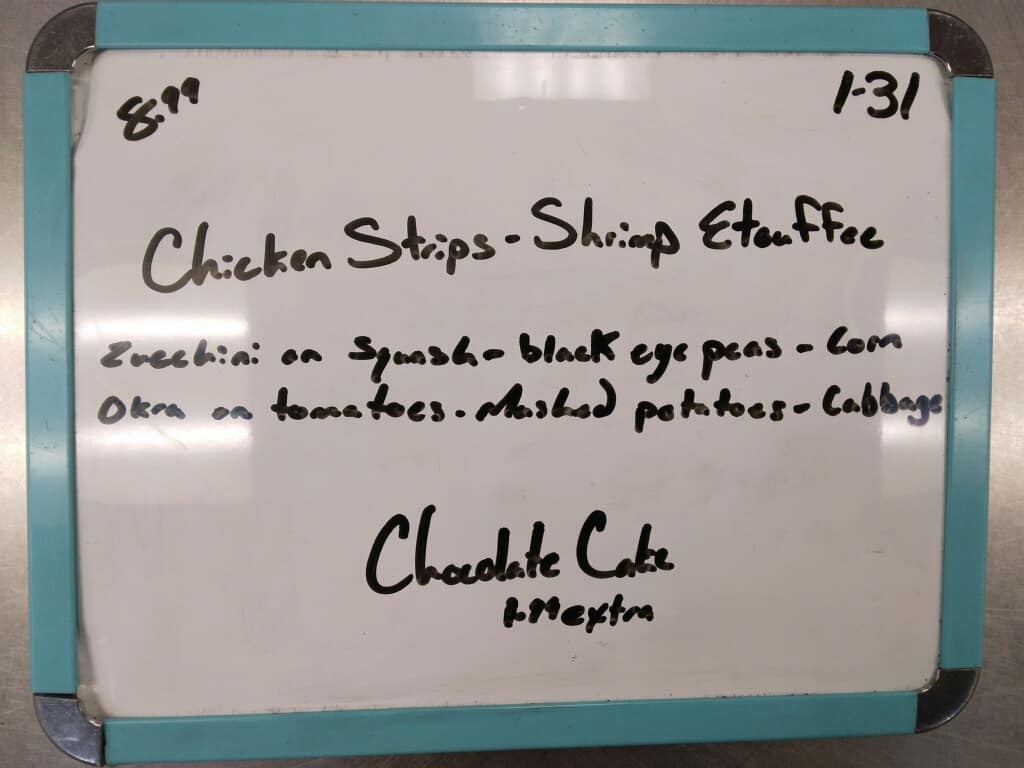 8.99
1-31
Chicken Strips - Shrimp Etouffee
Zucchini on Squash - black eye peas - Corn
Okra on tomatoes - Mashed potatoes - Cabbage
Chocolate Cake
1.99 extra